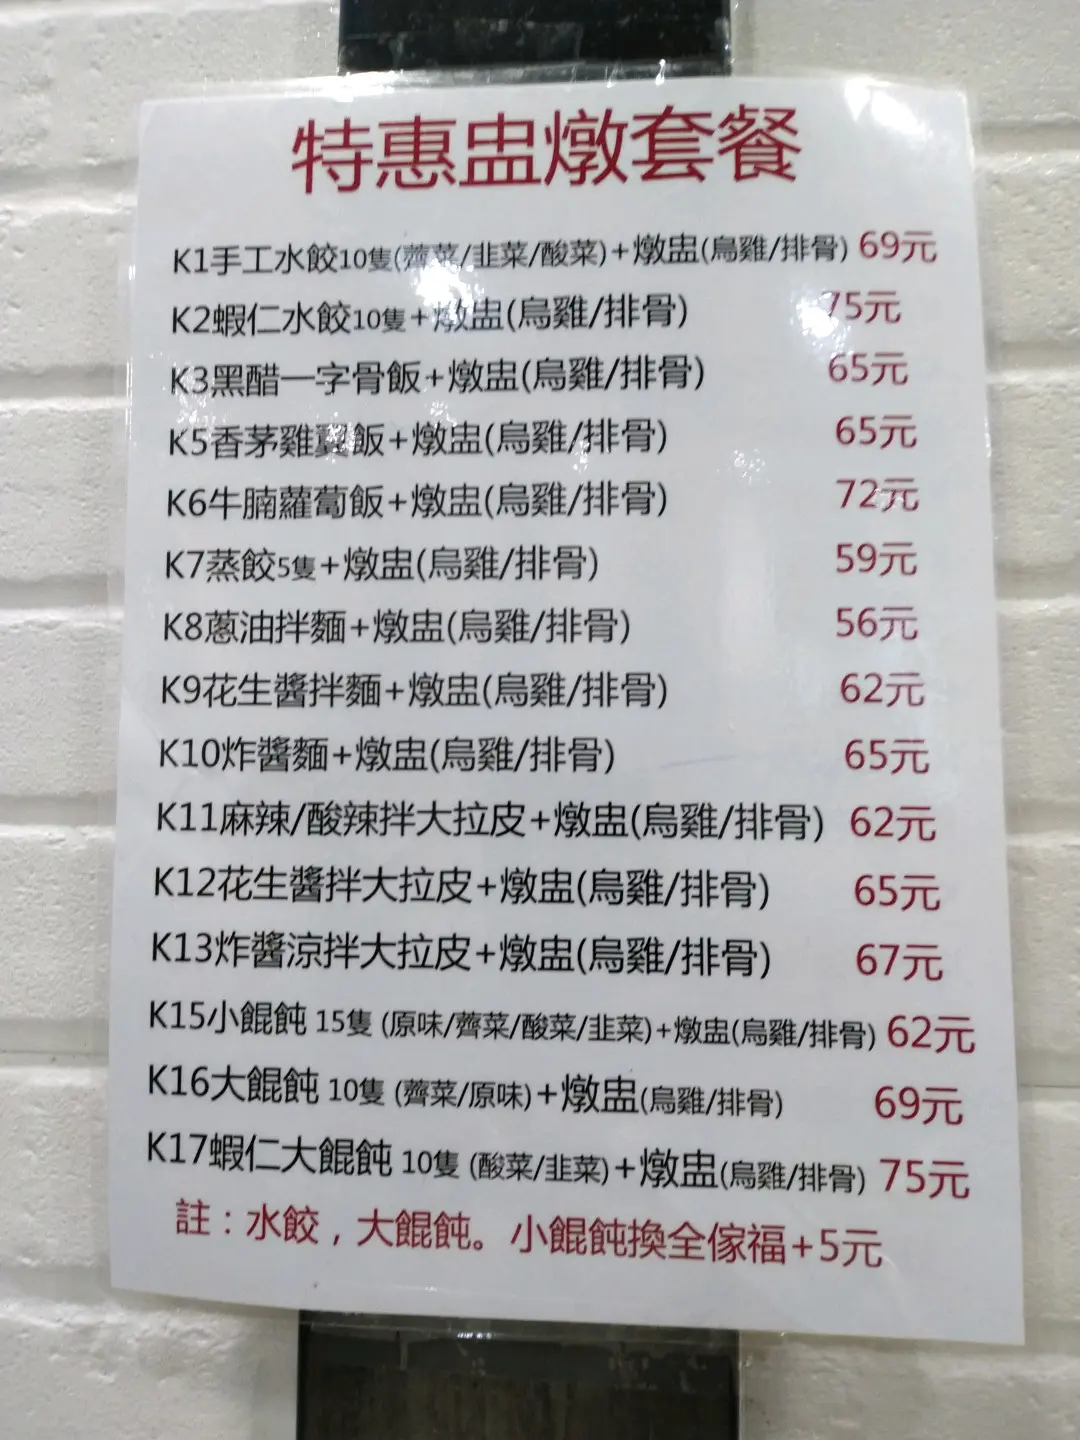 特惠盅燉套餐
K1手工水餃10隻(薺菜/韭菜/酸菜)+燉盅(烏雞/排骨) 69元
K2蝦仁水餃10隻+燉盅(烏雞/排骨) 75元
K3黑醋一字骨飯+燉盅(烏雞/排骨) 65元
K5香茅雞翼飯+燉盅(烏雞/排骨) 65元
K6牛腩蘿蔔飯+燉盅(烏雞/排骨) 72元
K7蒸餃5隻+燉盅(烏雞/排骨) 59元
K8蔥油拌麵+燉盅(烏雞/排骨) 56元
K9花生醬拌麵+燉盅(烏雞/排骨) 62元
K10炸醬麵+燉盅(烏雞/排骨) 65元
K11麻辣/酸辣拌大拉皮+燉盅(烏雞/排骨) 62元
K12花生醬拌大拉皮+燉盅(烏雞/排骨) 65元
K13炸醬涼拌大拉皮+燉盅(烏雞/排骨) 67元
K15小餛飩 15隻 (原味/薺菜/酸菜/韭菜)+燉盅(烏雞/排骨) 62元
K16大餛飩 10隻 (薺菜/原味)+燉盅(烏雞/排骨) 69元
K17蝦仁大餛飩 10隻 (酸菜/韭菜)+燉盅(烏雞/排骨) 75元
註：水餃，大餛飩。小餛飩換全傢福+5元